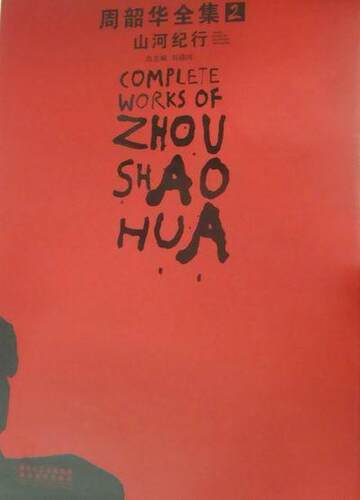 周韶华全集2
山河纪行
COMPLETE
WORKS OF
ZHOU
SHAO
HUA